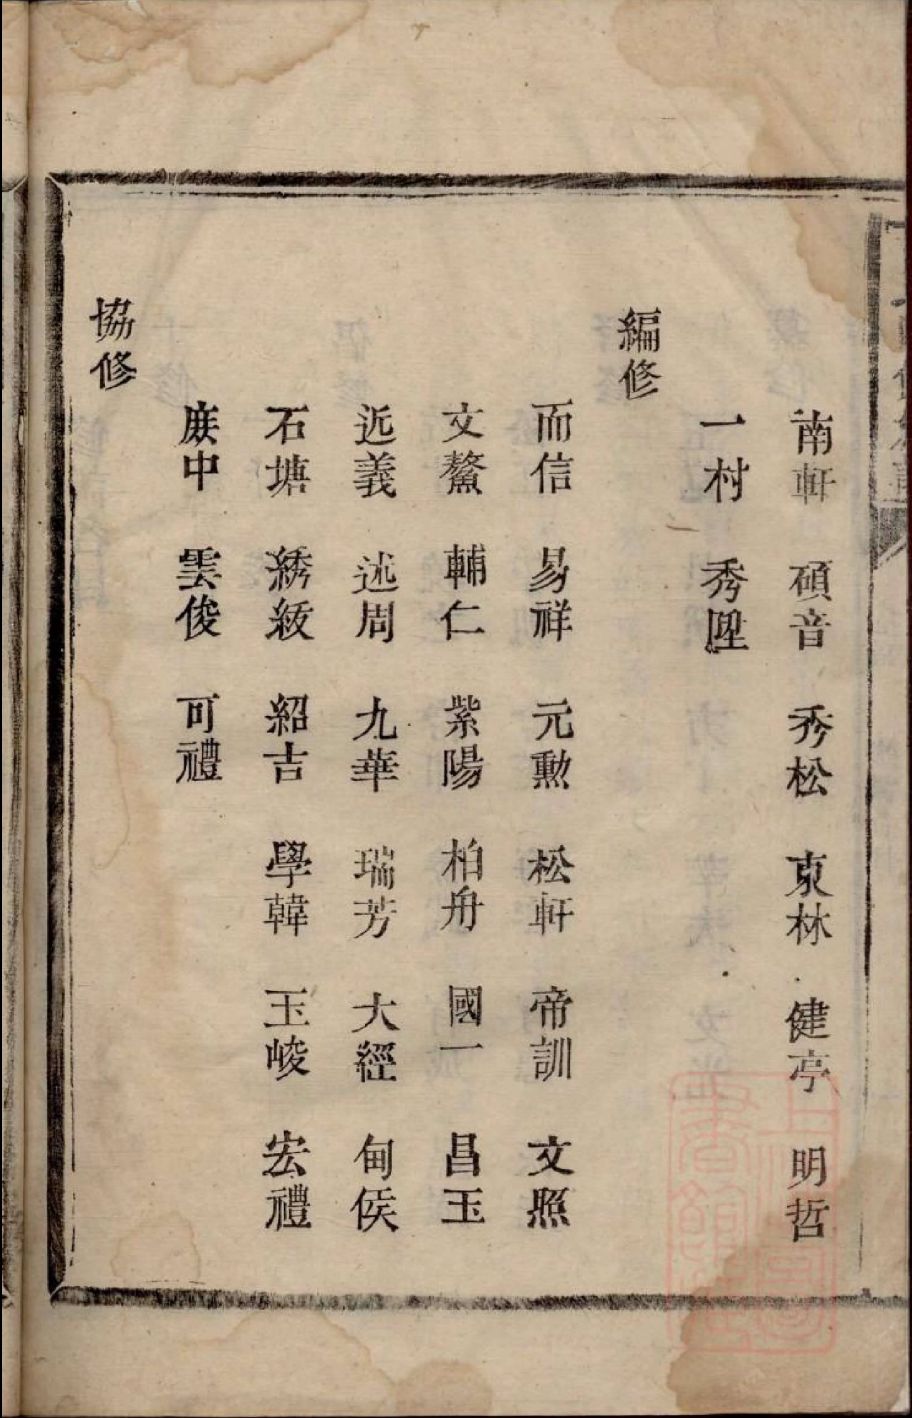 南軒 碩音 秀松 東林 健亭 明哲
一村 秀陞
編修
而信 易祥 元勲 松軒 帝訓 文照
文鰲 輔仁 紫陽 柏舟 國一 昌玉
近義 述周 九華 瑞芳 大經 甸侯
石塘 綉紱 紹吉 學韓 玉峻 宏禮
庶中 雲俊 可禮
協修